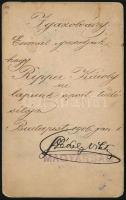 Igazolvány
Ezennel igazoljuk,
hogy
Rippu Károly
úr
lapunk sport tudó-
sítója
Budapest 1906 jan. 1